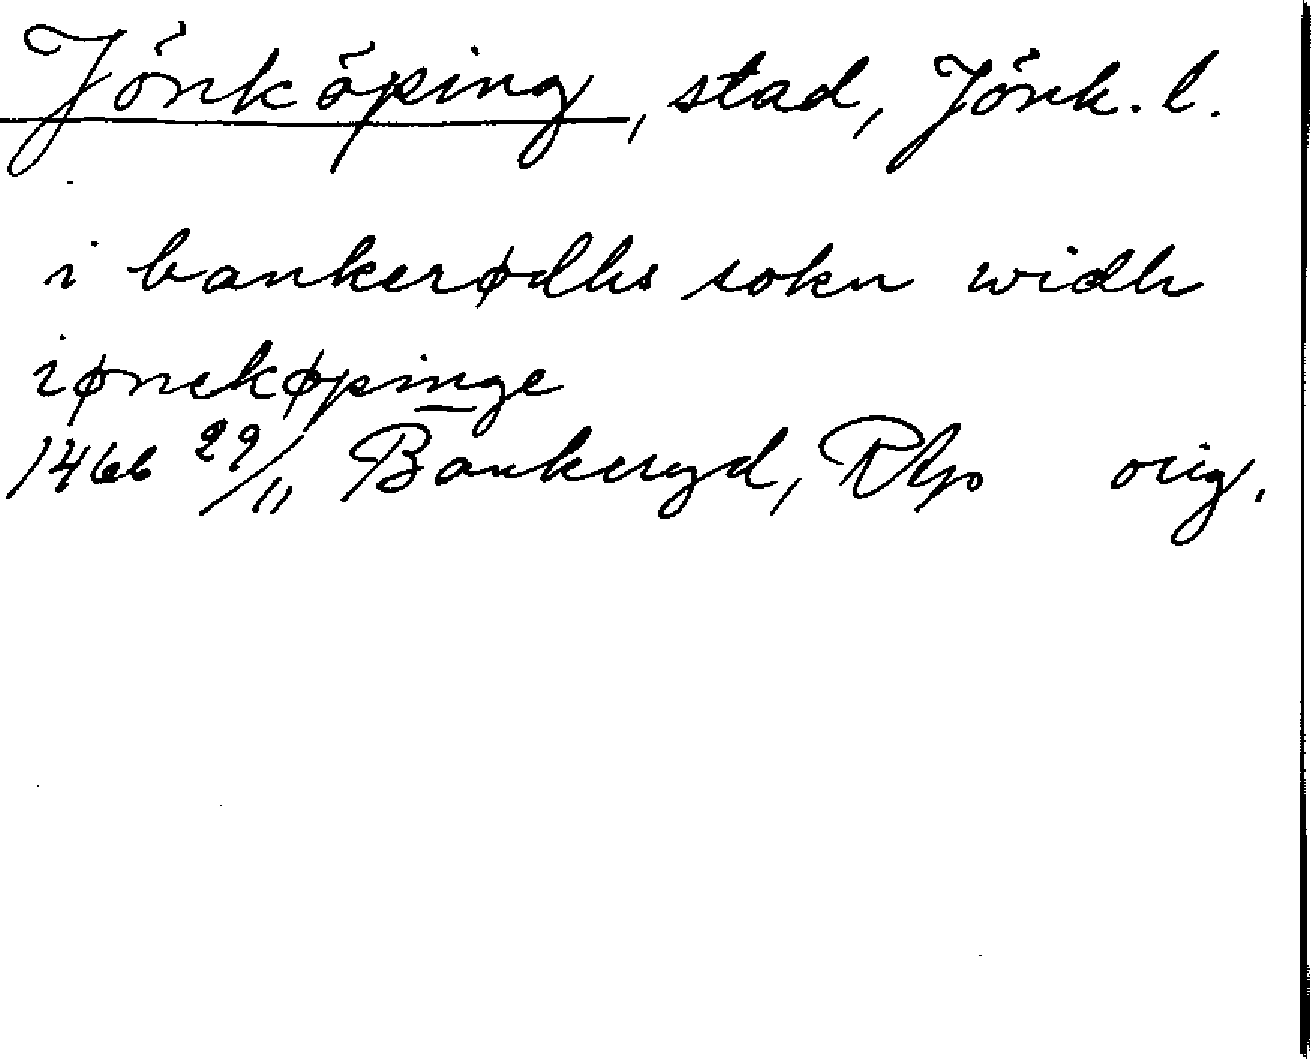 Jönköping, stad, Jönk. l.
i bankerødhs sokn widh
iønekøpinge
1466 29/11 Bankeryd, Rhp orig.